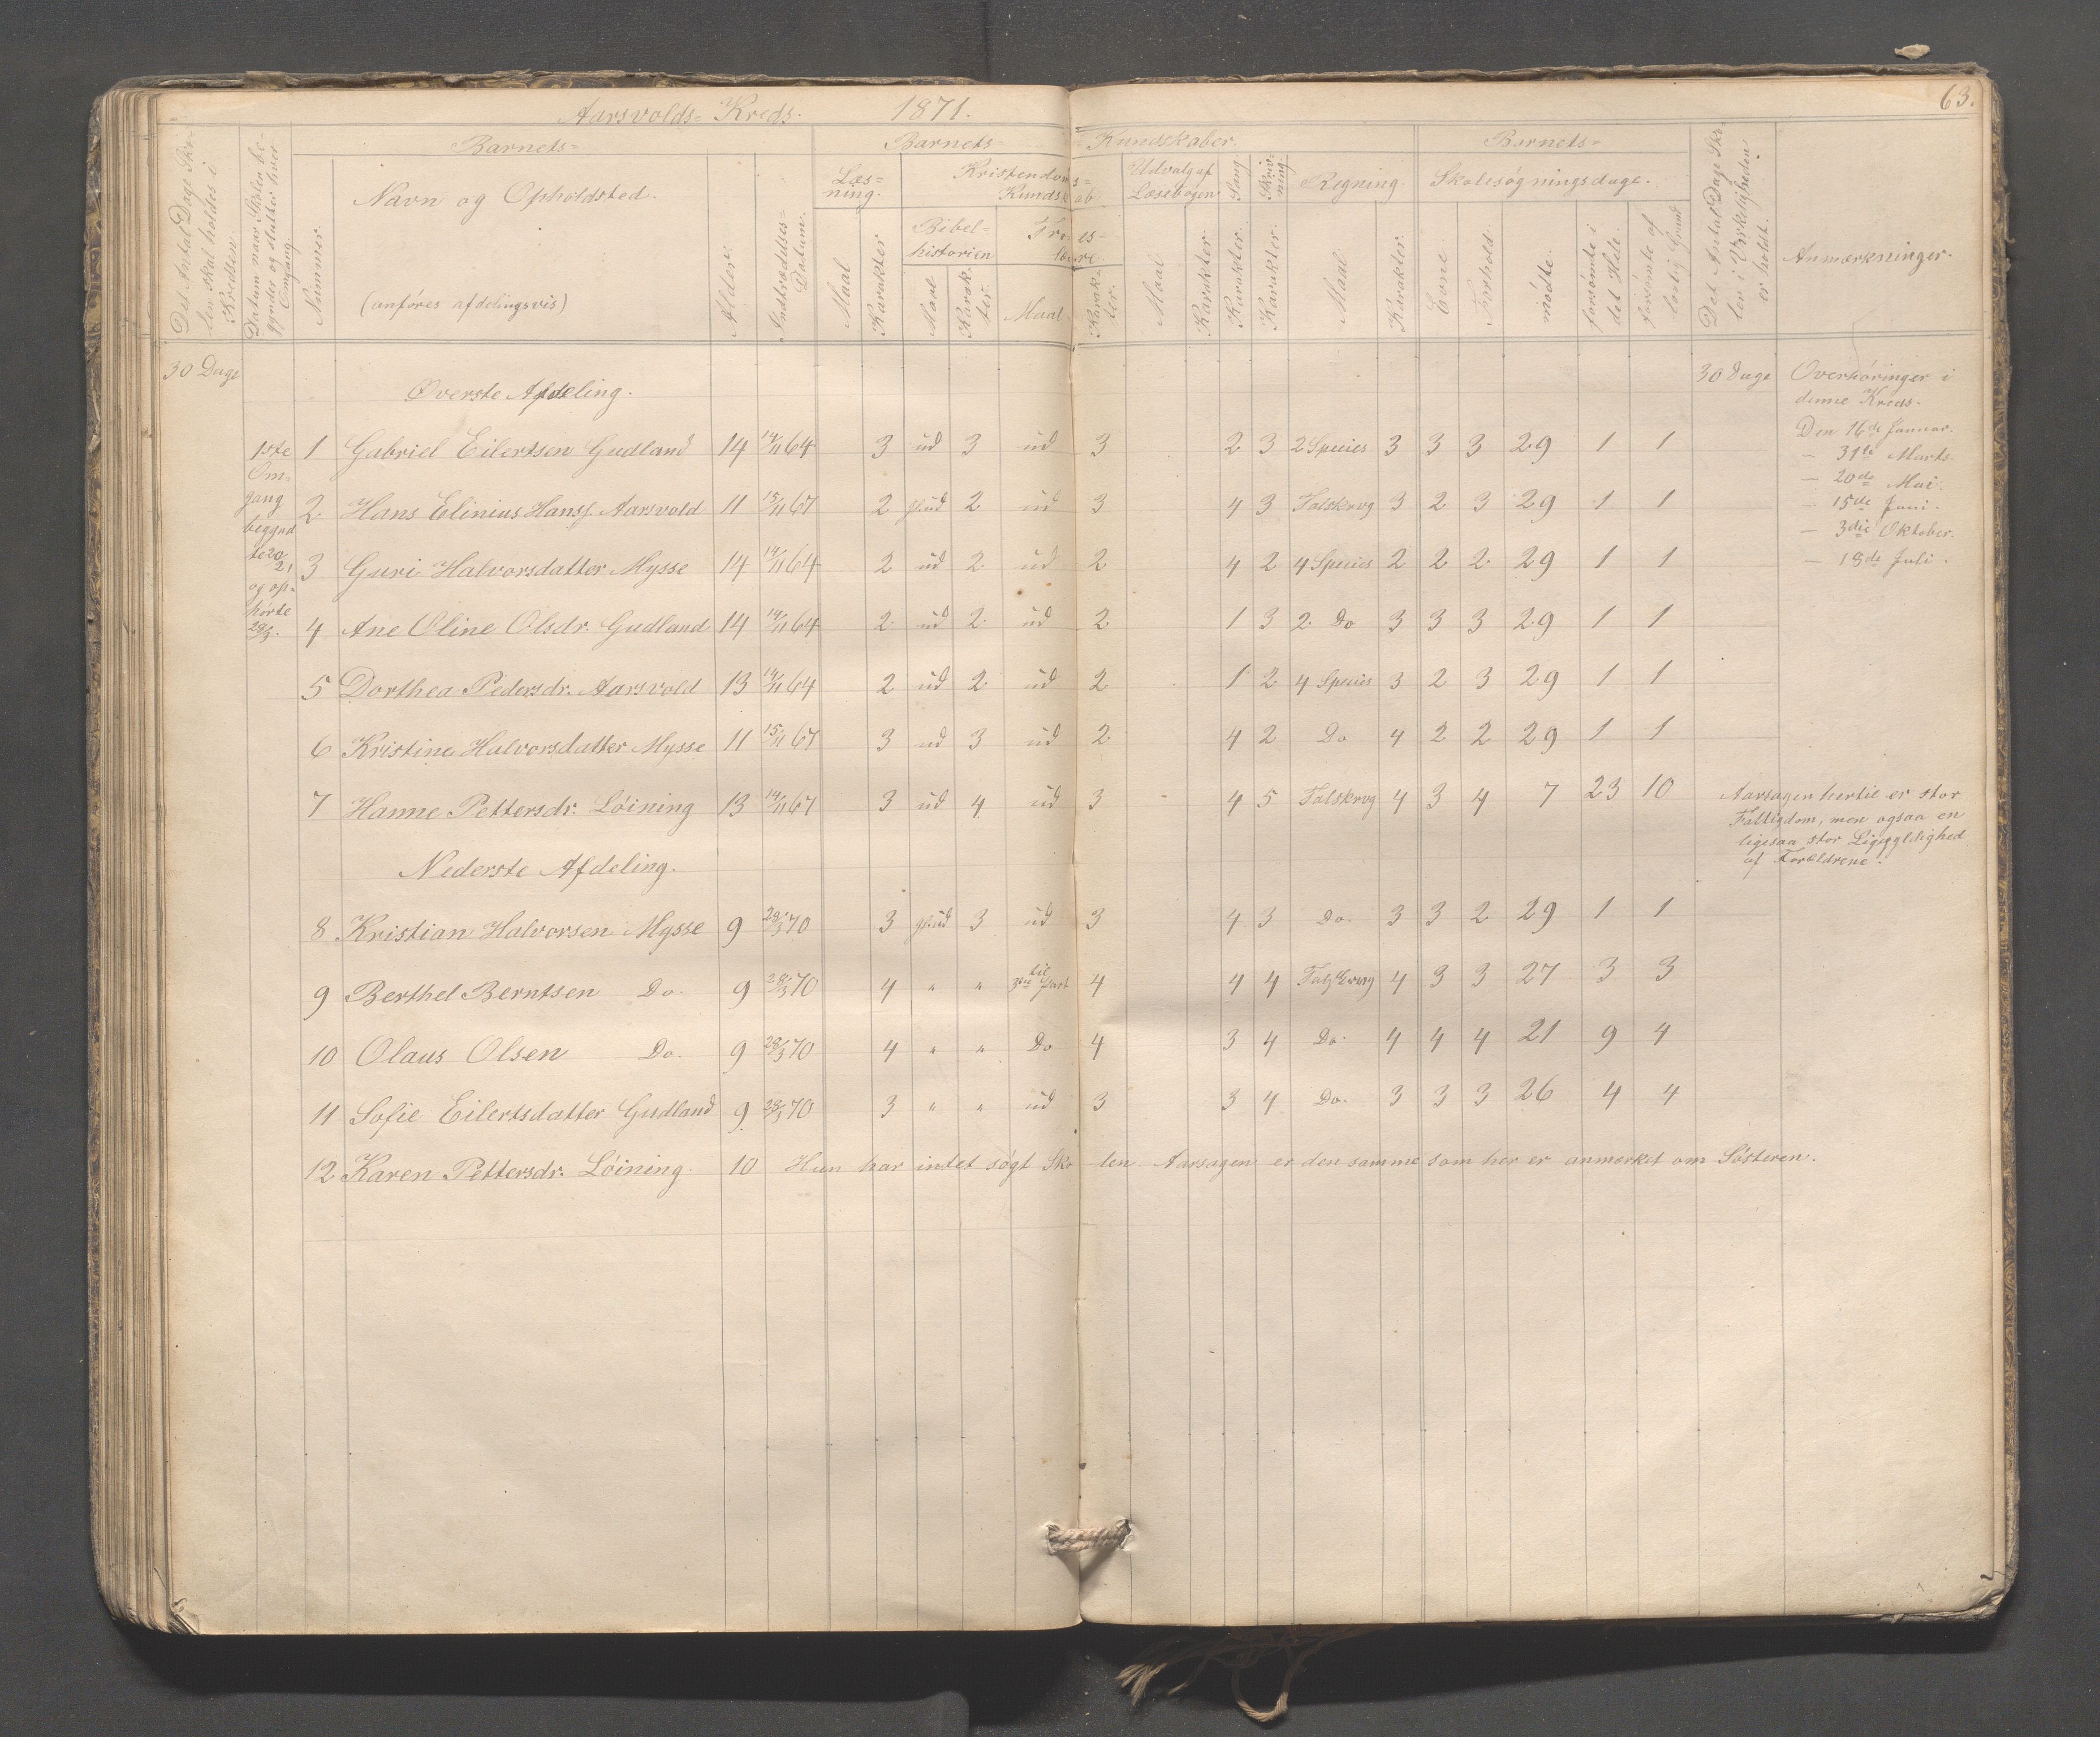 63.
Aarsvolds- Kreds. 1871.
Det Antal Dage Sko-
len skal holdes i
Kredsen.
Datum naar Skolen be-
gynder og slutter hver
Omgang.
Barnets-
Nummer.
Navn og Opholdsted.
(anføres afdelingsvis)
Alder.
Indtrædelses-
Datum.
Barnets- Kundskaber.
Læs-
ning.
Maal
Karakter
Kristendoms-
Kundskab.
Bibel-
historien
Maal
Karak-
ter.
Troes-
lære.
Maal.
Karak-
ter.
Udvalg af
Læsebogen
Maal
Karakter.
Sang
Karakter.
Skriv-
ning.
Karakter.
Regning.
Maal.
Karakter.
Barnets-
Evne.
Forhold.
Skolesøgningsdage.
mödte.
forsömte i
det Hele.
forsömte af
lovlig Grund
Det Antal Dage Sko-
len i Virkeligheden
er holdt.
Anmærkninger.
30 Dage
Øverste Afdeling.
30 Dage
Overhöringer i
denne Kreds.
Den 16de Januar.
— 31te Marts.
— 20de Mai.
— 15de Juni.
— 3die Oktober.
— 18de Juli.
1ste
Om-
gang
begynd
te 20/2,
og op-
hörte
29/3.
1 Gabriel Eilertsen Gudland 14 14/11 64 3 ud 3 ud 3 2 3 2 Species 3 3 3 29 1 1
2 Hans Elinius Hanss. Aarsvold 11 15/11 67 2 gl. ud 2 ud 3 4 3 Talskrvg 3 2 3 29 1 1
3 Guri Halvorsdatter Mysse 14 14/11 64 2 ud 2 ud 2 4 2 4 Species 2 2 2 29 1 1
4 Ane Oline Olsdr. Gudland 14 14/11 64 2 ud 2 ud 2 1 3 2 Do 3 3 3 29 1 1
5 Dorthea Pedersdr. Aarsvold 13 14/11 64 2 ud 2 ud 2 1 2 4 Species 3 2 3 29 1 1
6 Kristine Halvorsdatter Mysse 11 15/11 67 3 ud 3 ud 2 4 2 Do 4 2 2 29 1 1
7 Hanne Pettersdr. Löining 13 14/11 67 3 ud 4 ud 3 4 5 Talskrvg 4 3 4 7 23 10
Aarsagen hertil er stor
Fattigdom, men ogsaa en
ligesaa stor Ligegyldighed
af Forældrene.
Nederste Afdeling.
8 Kristian Halvorsen Mysse 9 28/3 70 3 gl. ud 3 ud 3 4 3 Do. 3 3 2 29 1 1
9 Berthel Berntsen Do. 9 28/3 70 4 " " til 3die Part 4 4 4 Talskrvg 4 3 3 27 3 3
10 Olaus Olsen Do. 9 28/3 70 4 " " Do 4 3 4 Do. 4 4 4 21 9 4
11 Sofie Eilertsdatter Gudland 9 28/3 70 3 " " ud 3 3 4 Do. 3 3 3 26 4 4
12 Karen Pettersdr. Löining. 10 Hun har intet sögt Skolen. Aarsagen er den samme som her er anmerket om Sösteren.